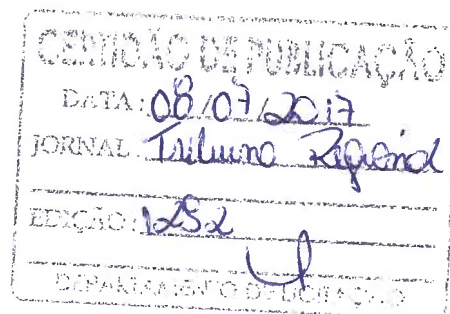 CERTIDÃO DE PUBLICAÇÃO
DATA: 08/07/2017
JORNAL: Tribuna Regional
EDIÇÃO: 1252
DEPARTAMENTO DE LICITAÇÃO